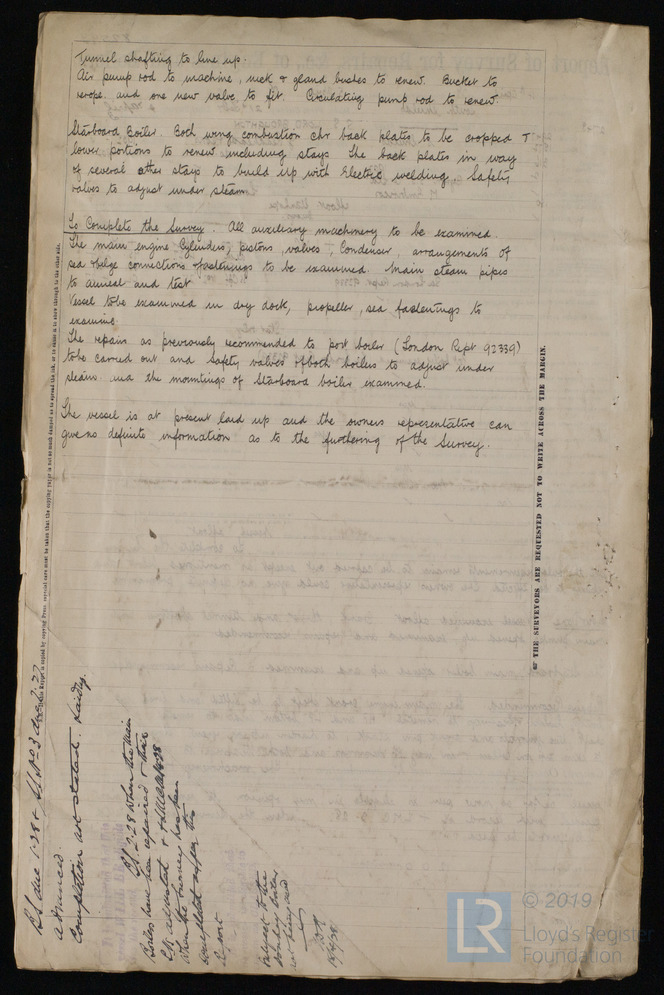 Tunnel shafting to line up.
Air pump rod to machine, neck & gland bushes to renew. Bucket to
rerope and one new valve to fit. Circulating pump rod to renew.
Starboard Boiler. Both wing combustion chr back plates to be cropped &
lower portions to renew including stays The back plates in way
of several other stays to build up with Electric welding. Safety
valves to adjust under steam.
To Complete the Survey. All auxiliary machinery to be examined.
The main engine Cylinders, pistons, valves, Condenser, arrangements of
sea & bilge connections & fastenings to be examined. Main steam pipes
to anneal and test
Vessel to be examined in dry dock, propeller, sea fastenings to
examine.
The repairs as previously recommended to port boiler (London Rept 92339)
to be carried out and safety valves of both boilers to adjust under
steam and the mountings of Starboard boiler examined.
The vessel is at present laid up and the owners representative can
give no definite information as to the furthering of the Survey.
THE SURVEYORS ARE REQUESTED NOT TO WRITE ACROSS THE MARGIN.
BS due 1.28 & SS No 3 due 2.27
advanced.
Completion not stated. Laid up.
BS 2.28 when the main
Boiles have been repaired & their
adjusted &
when the survey has been
completed
report
subject to the
donkey boiler
not being used
© 2019
LR
Lloyd's Register
Foundation